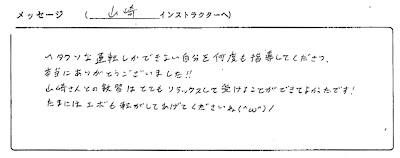 メッセージ ( 山崎 インストラクターへ)
ヘタクソな運転しかできない自分を何度も指導してくださり、
本当にありがとうございました!!
山崎さんとの教習はとてもリラックスして受けることができてよかったです!
たまにはエボも転がしてあげてくださいね(^ω^)/